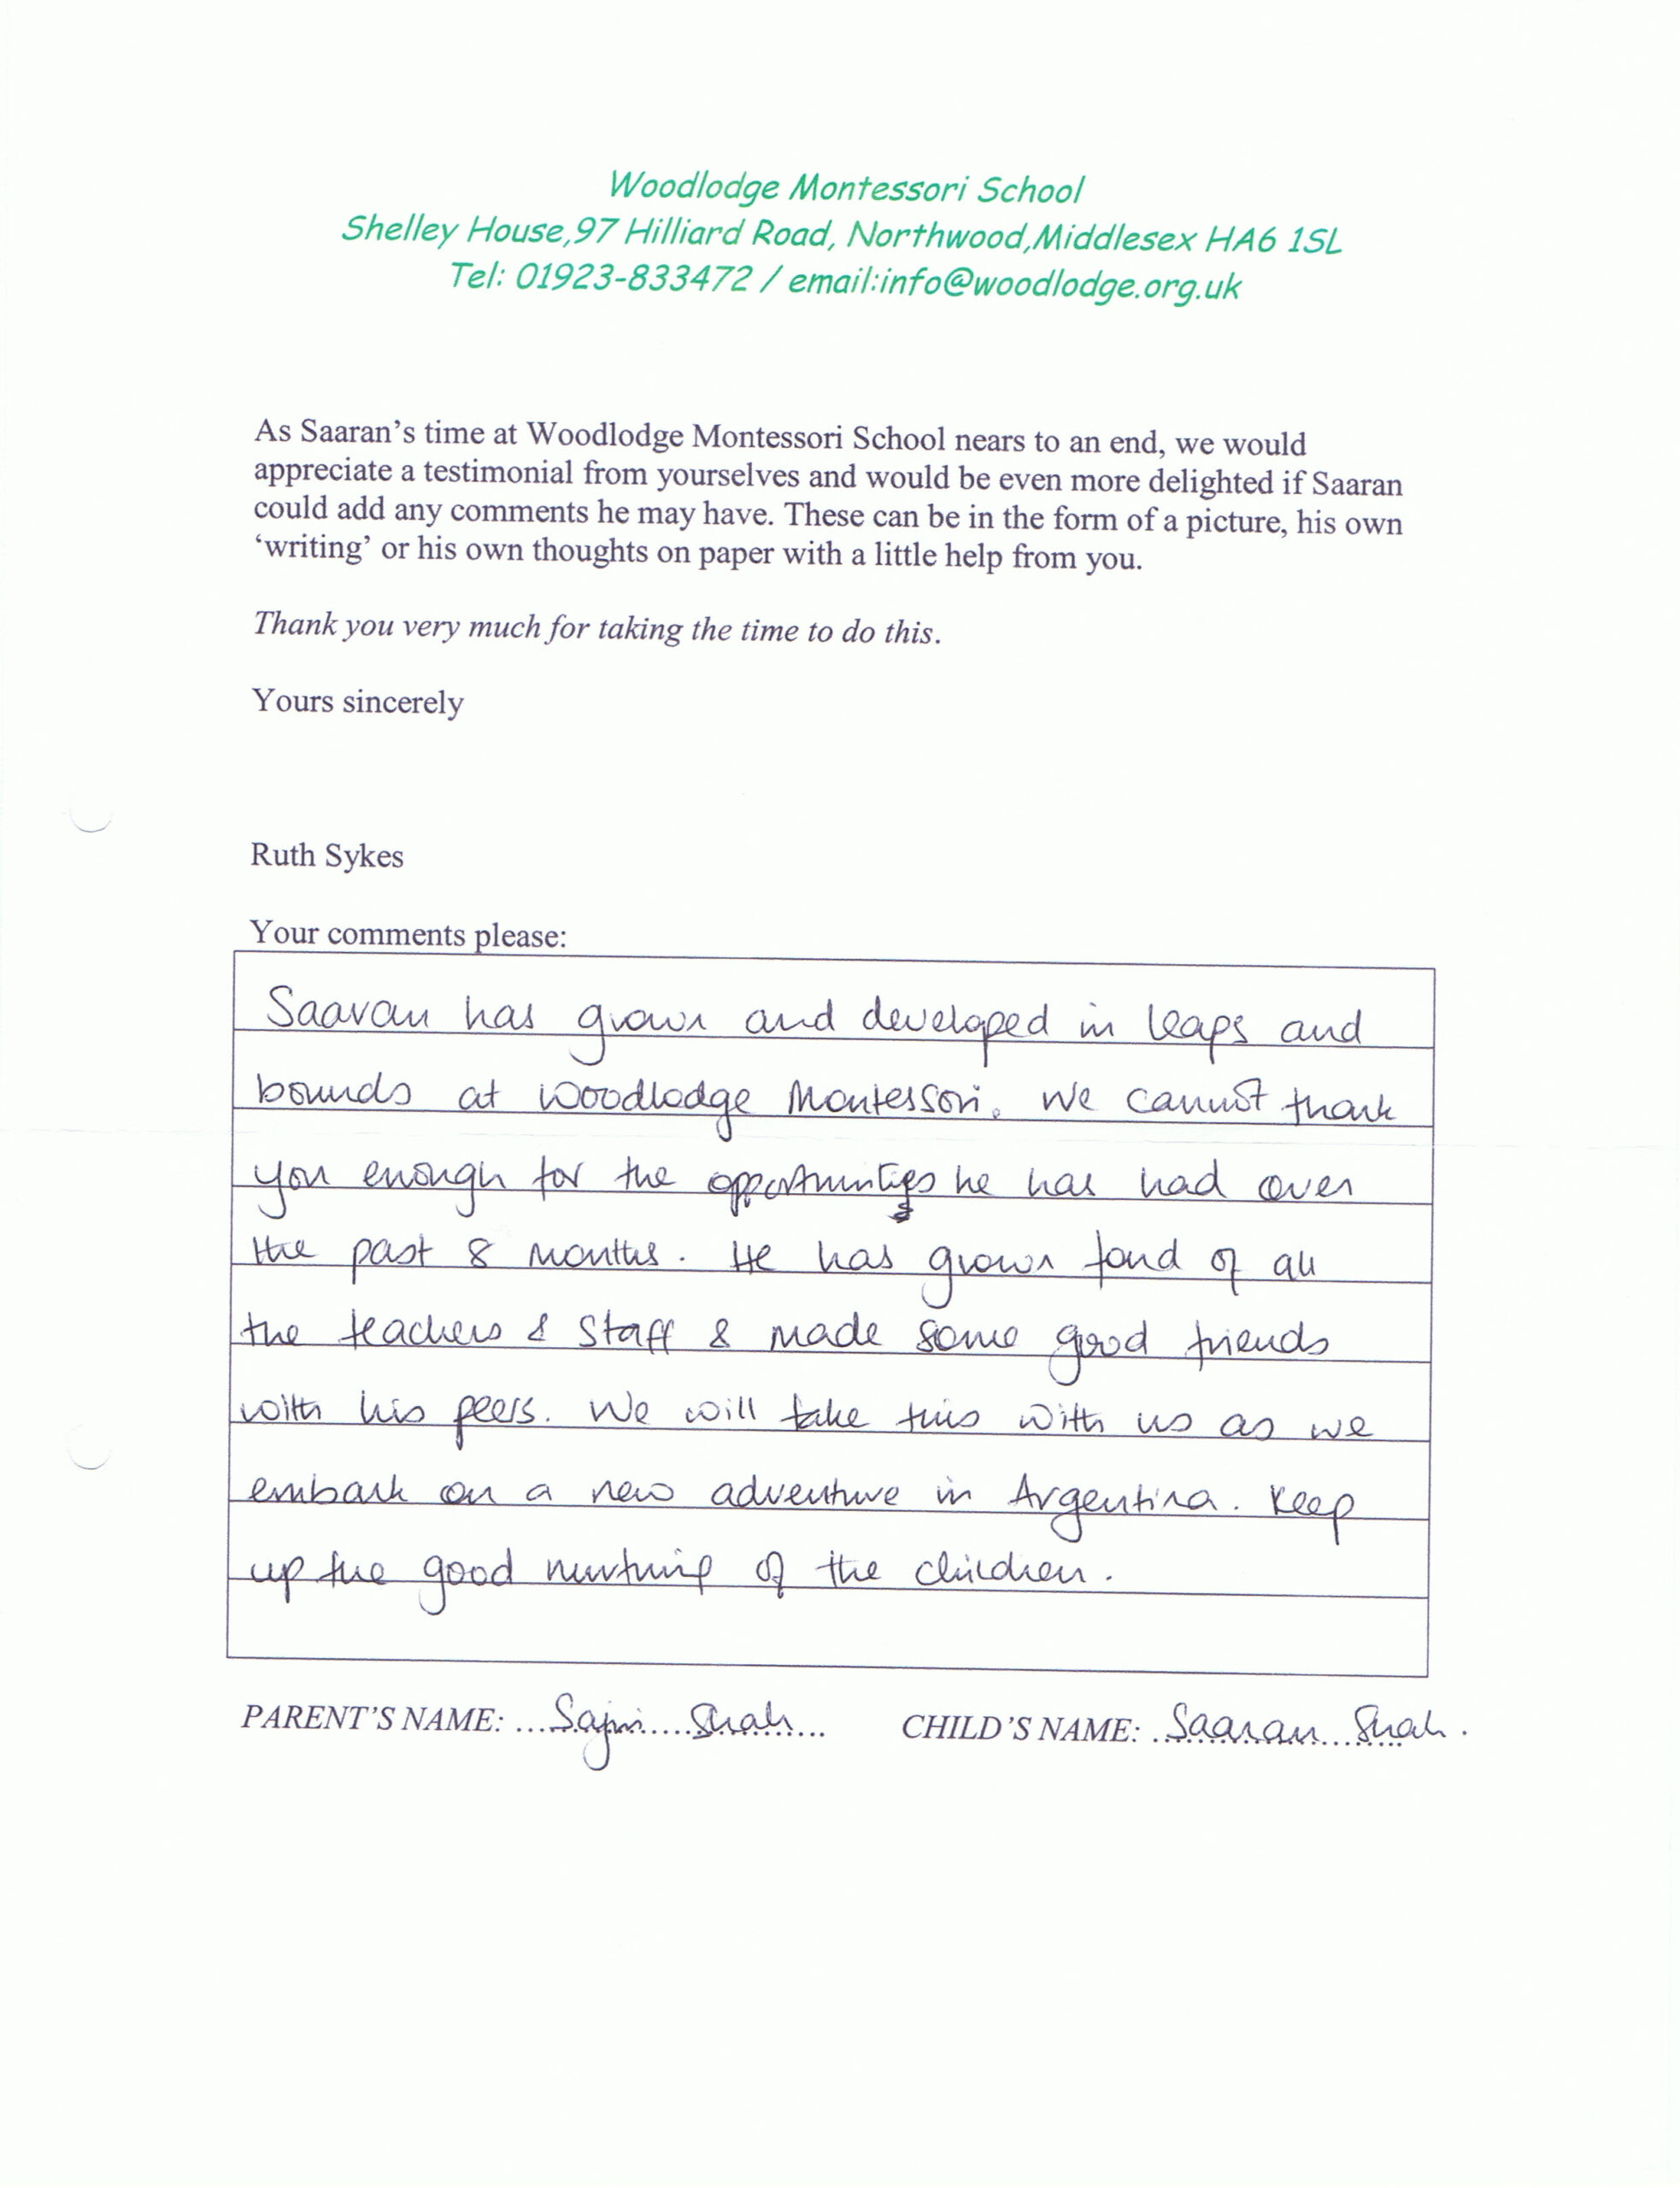 Woodlodge Montessori School
Shelley House,97 Hilliard Road, Northwood,Middlesex HA6 1SL
Tel: 01923-833472 / email:info@woodlodge.org.uk
As Saaran's time at Woodlodge Montessori School nears to an end, we would
appreciate a testimonial from yourselves and would be even more delighted if Saaran
could add any comments he may have. These can be in the form of a picture, his own
'writing' or his own thoughts on paper with a little help from you.
Thank you very much for taking the time to do this.
Yours sincerely
Ruth Sykes
Your comments please:
Saaran has grown and developed in leaps and
bounds at Woodlodge Montessori. We cannot thank
you enough for the opportunities he has had over
the past 8 months. He has grown fond of all
the teachers & staff & made some good friends
with his peers. We will take this with us as we
embark on a new adventure in Argentina. Keep
up the good nurturing of the children.
PARENT'S NAME: ...Sajni....Shah... CHILD'S NAME: ..Saaran...Shah.